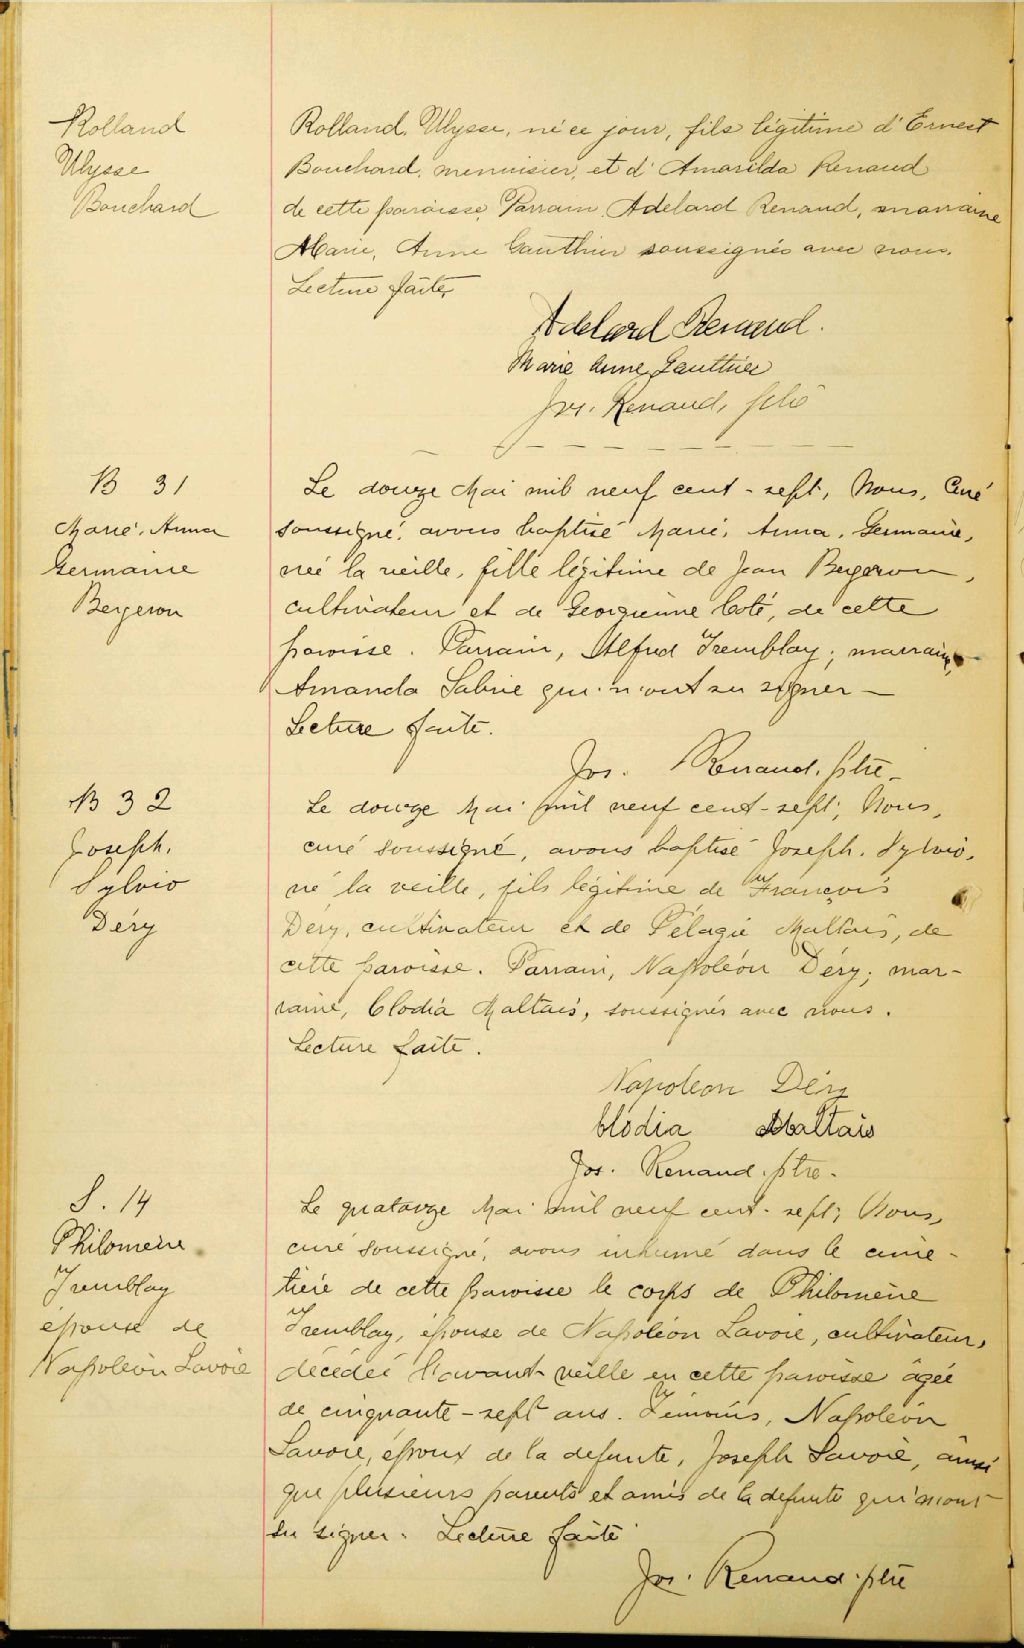 Rolland
Ulysse
Bouchard
Rolland, Ulysse, né ce jour, fils légitime d'Ernest
Bouchard, menuisier, et d'Amarilda Renaud
de cette paroisse. Parrain, Adelard Renaud, marraine
Marie, Anne Gauthier soussignés avec nous.
Lecture faite,
Adelard Renaud.
Marie Anne Gauthier
Jos. Renaud, ptre
B 31
Marie. Anna
Germaine
Bergeron
Le douze Mai mil neuf cent-sept, Nous, Curé
soussigné, avons baptisé Marie, Anna, Germaine,
née la veille, fille légitime de Jean Bergeron,
cultivateur et de Georgienne Coté, de cette
paroisse. Parrain, Alfred Tremblay; marraine,
Amanda qui n'ont su signer —
Lecture faite.
Jos. Renaud, ptre
B 32
Joseph.
Sylvio
Déry
Le douze Mai mil neuf cent-sept; Nous,
curé soussigné, avons baptisé Joseph. Sylvio,
né la veille, fils légitime de François
Déry, cultivateur et de Pélagie Maltais, de
cette paroisse. Parrain, Napoléon Déry; mar-
raine, Clodia Maltais, soussignés avec nous.
Lecture faite.
Napoleon Déry
Clodia Maltais
Jos. Renaud. ptre.
S. 14
Philomène
Tremblay
épouse de
Napoléon Lavoie
Le quatorze Mai mil neuf cent-sept; Nous,
curé soussigné, avons inhumé dans le cime-
tière de cette paroisse le corps de Philomène
Tremblay, épouse de Napoléon Lavoie, cultivateur,
décédée l'avant-veille en cette paroisse âgée
de cinquante-sept ans. Témoins, Napoléon
Lavoie, époux de la defunte, Joseph Lavoie, ainsi
que plusieurs parents et amis de la defunte qui n'ont
su signer. Lecture faite
Jos. Renaud ptre